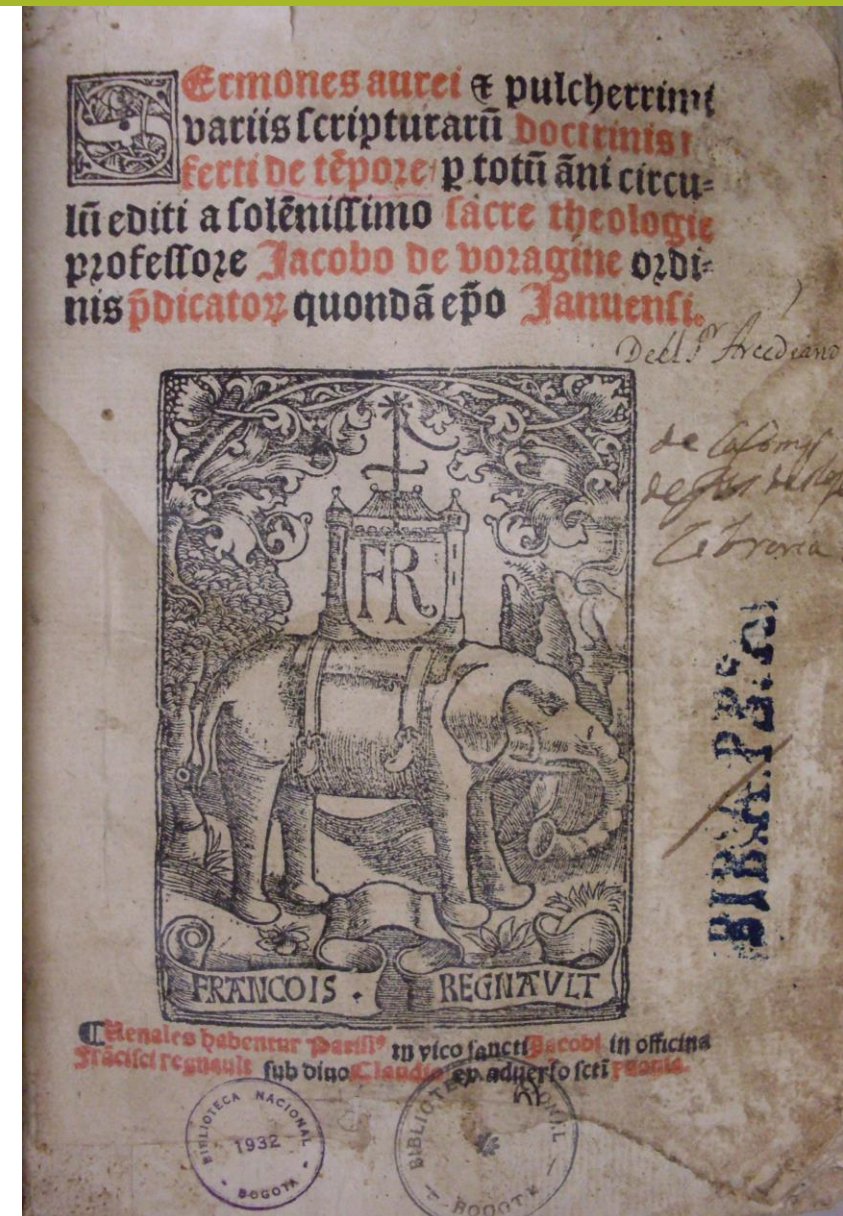 SErmones aurei ⁊ pulcherrimi
variis scripturarũ doctrinis
ferti de tẽpore p totũ ãni circu=
lũ editi a solẽnissimo sacre theologie
professore Jacobo de voragine ordi=
nis p̃dicatoꝝ quondã epo Januensi.
Dell Sr Arcediano
de
Libreria
FR
BIB
FRANCOIS . REGNAVLT
¶ Venales habentur Parisiꝰ in vico sancti Jacobi in officina
Frãcisci regnault sub diuo Claudio ex aduerso scti
BIBLIOTECA NACIONAL
1932
BOGOTA
BIBLIOTECA NACIONAL
BOGOTA